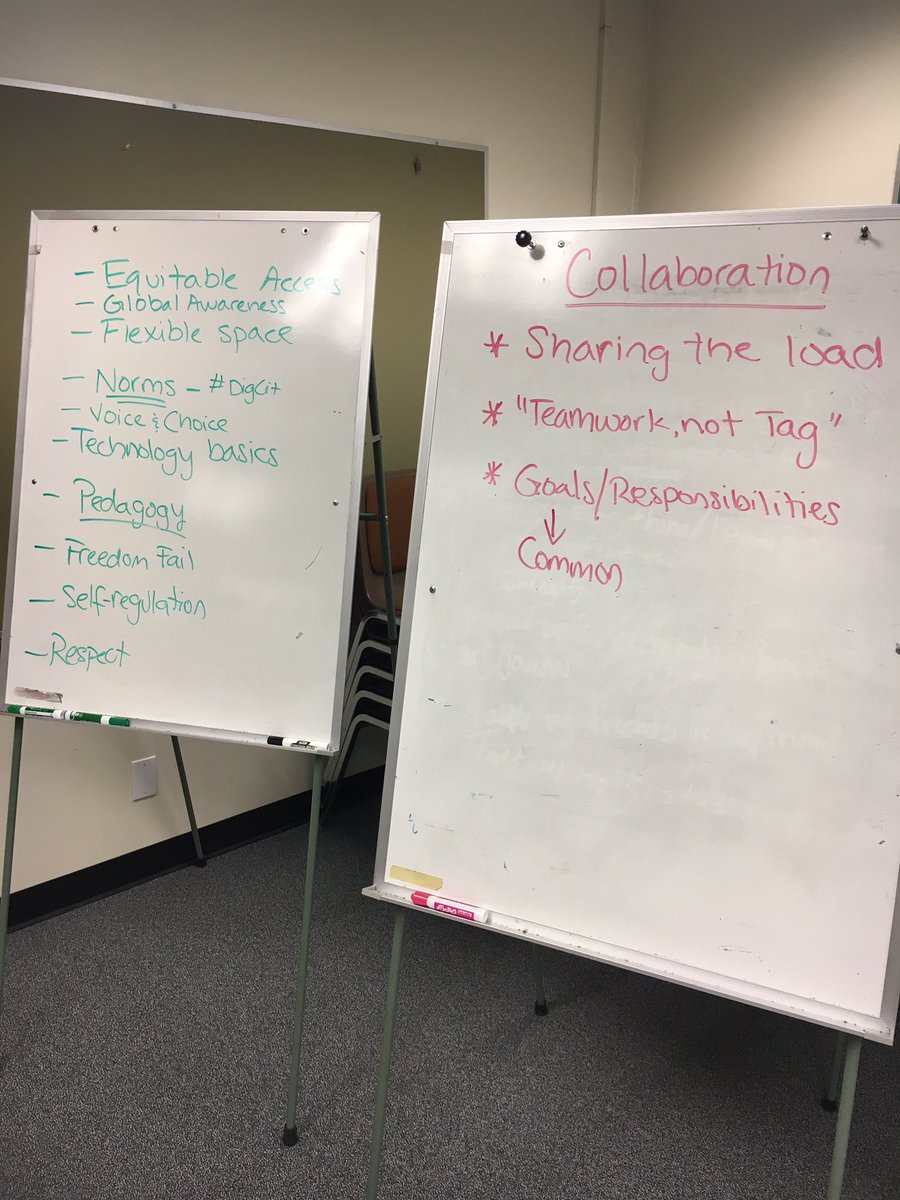 - Equitable Access
- Global Awareness
- Flexible space
- Norms - #DigCit
- Voice & Choice
- Technology basics
- Pedagogy
- Freedom Fail
- Self-regulation
- Respect
Collaboration
* Sharing the load
* "Teamwork, not Tag"
* Goals/Responsibilities
↓
Common